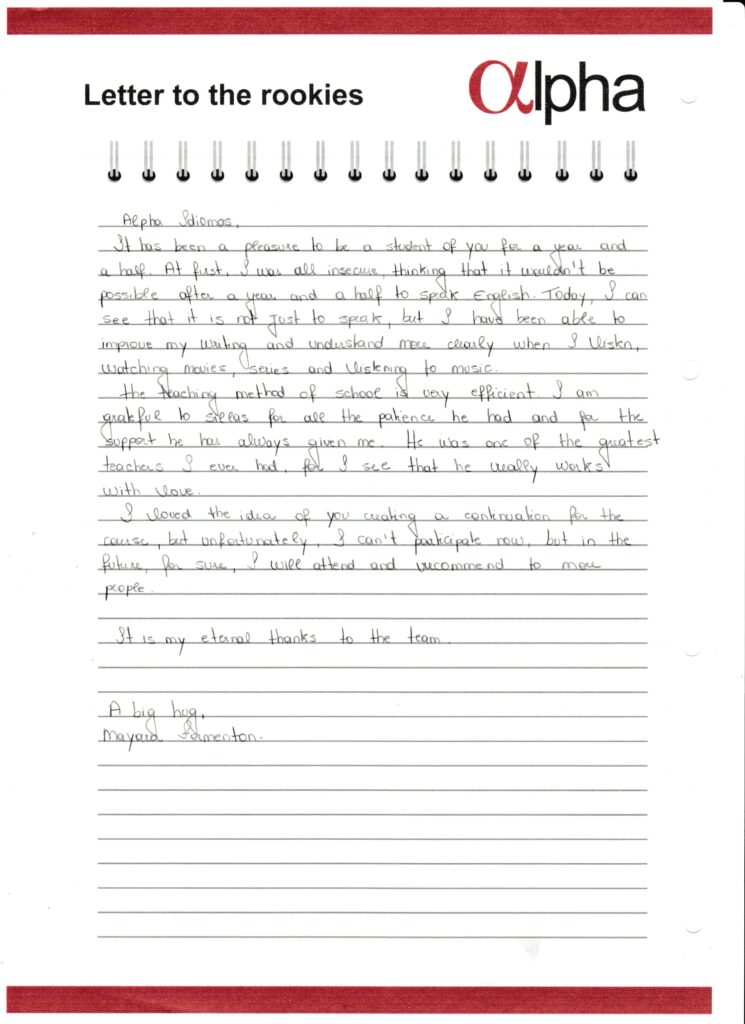 Letter to the rookies
αlpha
Alpha Idiomas,
It has been a pleasure to be a student of you for a year and
a half. At first, I was all insecure, thinking that it wouldn't be
possible after a year and a half to speak English. Today, I can
see that it is not just to speak, but I have been able to
improve my writing and understand more clearly when I listen,
watching movies, series and listening to music.
The teaching method of school is very efficient. I am
grateful to Sillas for all the patience he had and for the
support he has always given me. He was one of the greatest
teachers I ever had, for I see that he really works
with love.
I loved the idea of you creating a continuation for the
course, but unfortunately, I can't participate now, but in the
future, for sure, I will attend and recommend to more
people.
It is my eternal thanks to the team.
A big hug,
Mayara Formenton.